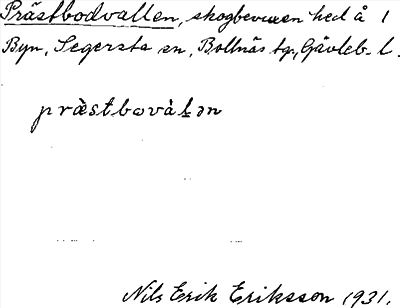 Prästbodvallen, skogbevuxen hed å 1
Byn, Segersta sn, Bollnäs tg, Gävleb. l.
præ̀stbωvàl̬ən
Nils Erik Eriksson 1931.